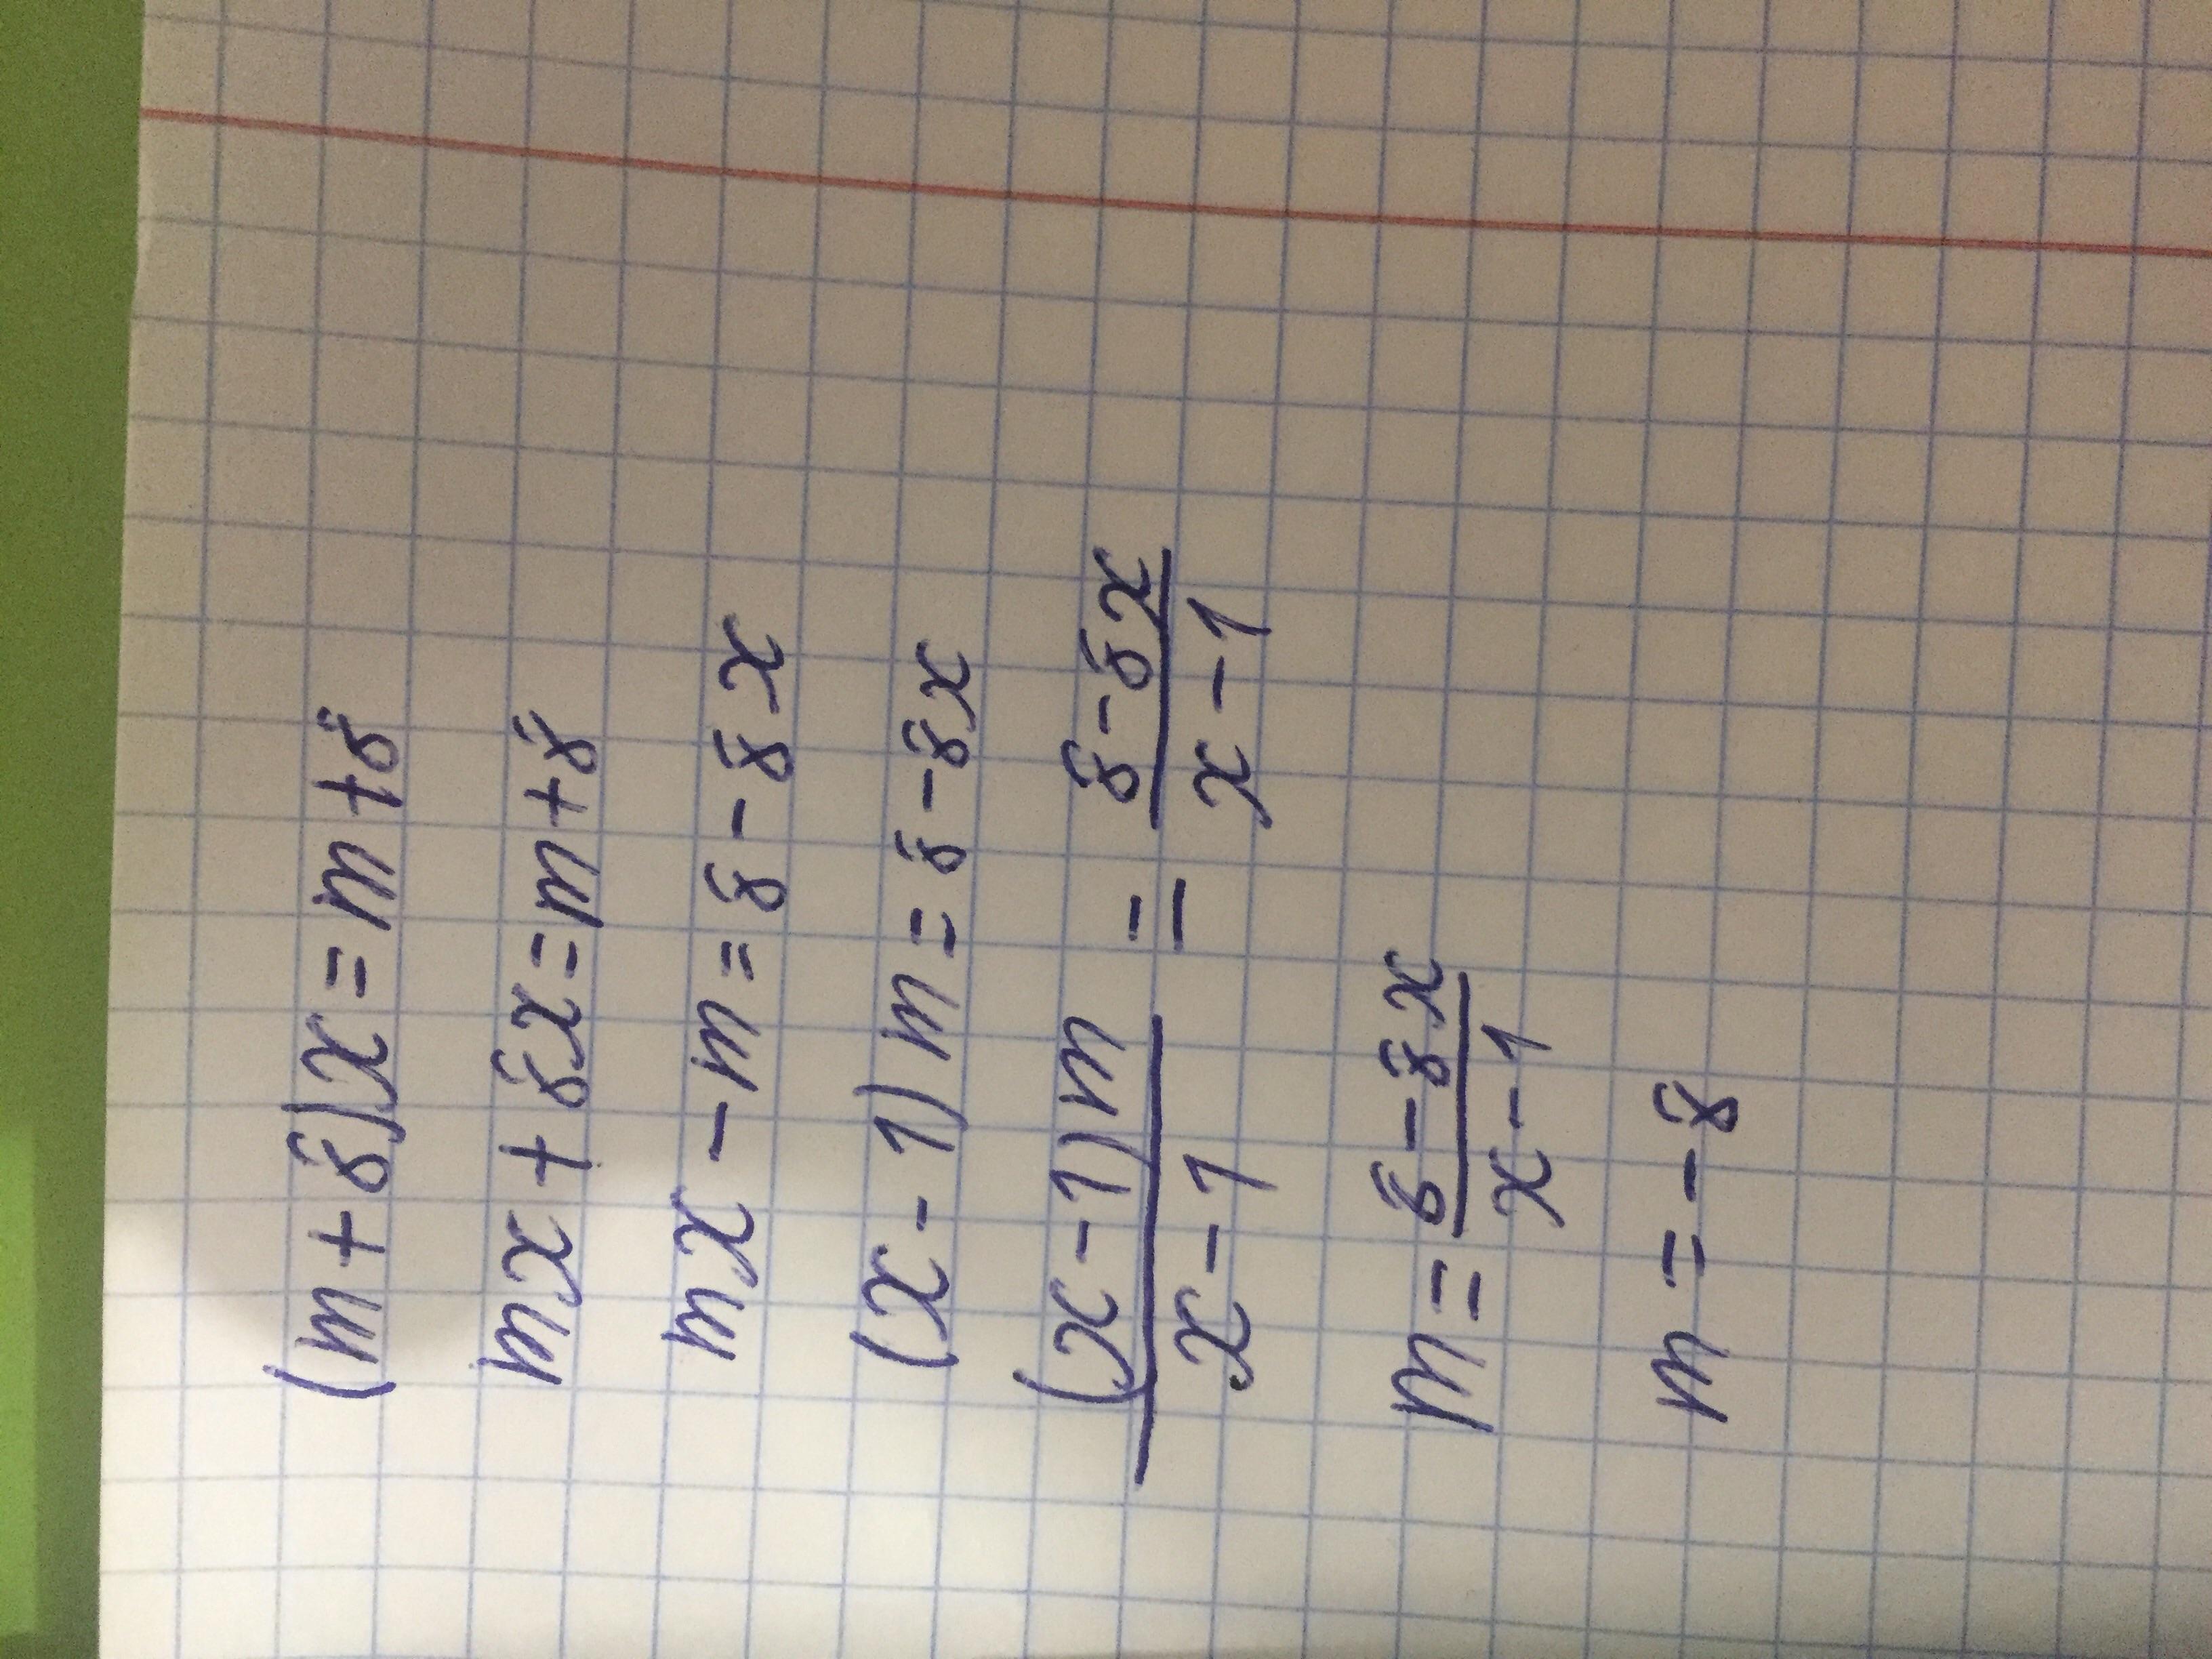 (m+8)x=m+8
mx+8x=m+8
mx-m=8-8x
(x-1)m=8-8x
(x-1)m/x-1 = 8-8x/x-1
m=8-8x/x-1
m=-8